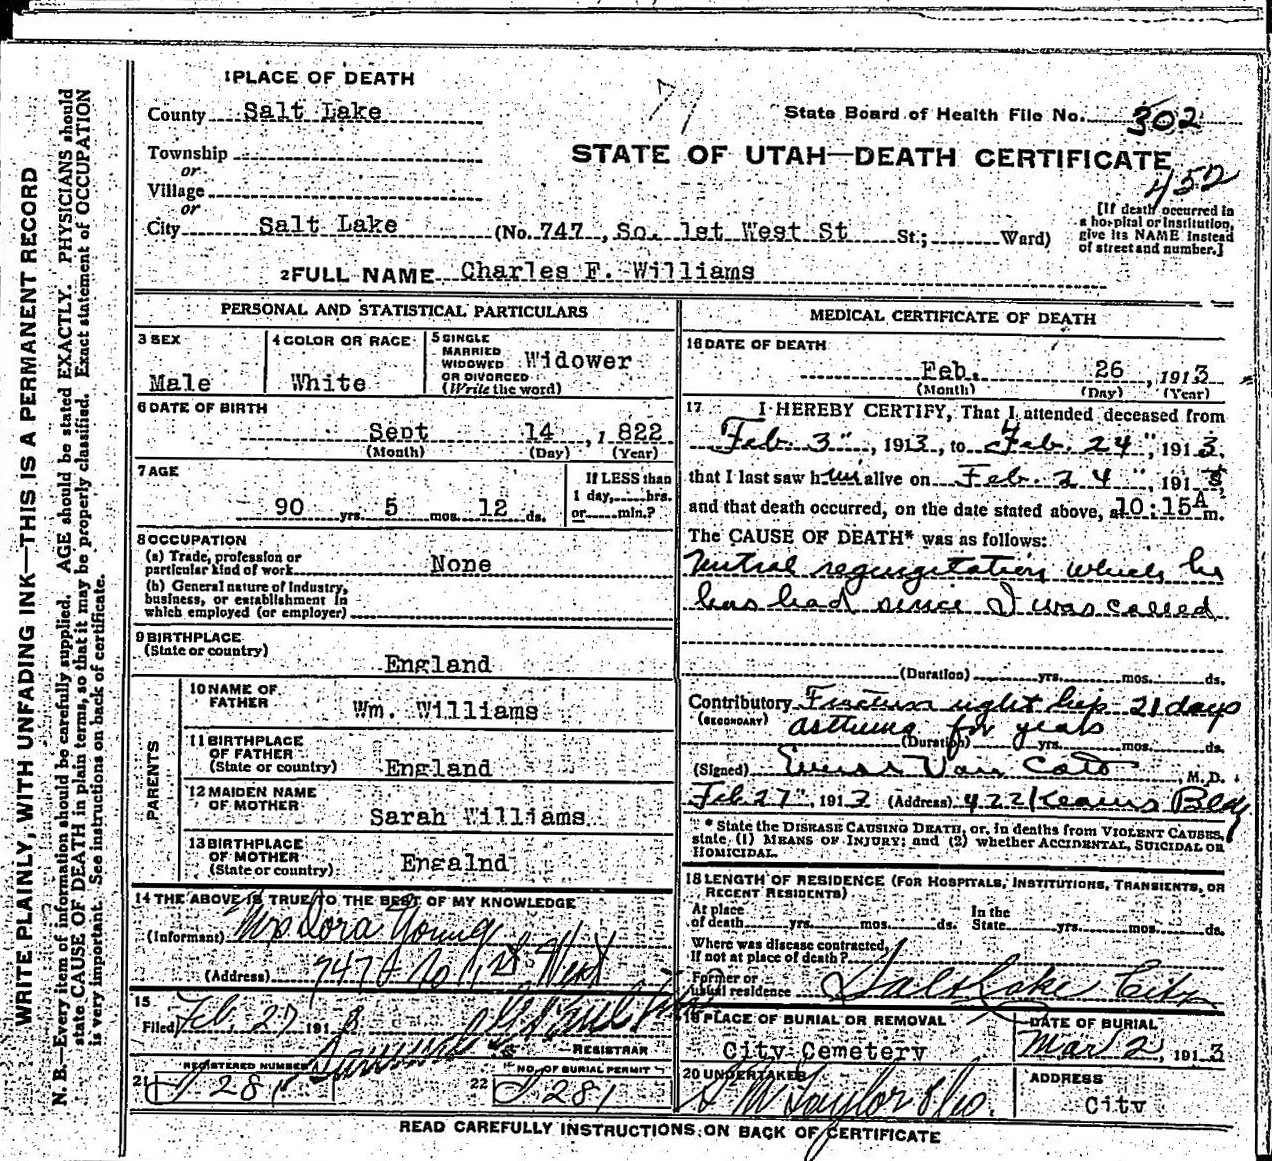 1 PLACE OF DEATH
County Salt Lake
77
State Board of Health File No. 302
Township
or
STATE OF UTAH—DEATH CERTIFICATE
452
Village
or
City Salt Lake (No. 747, So. 1st West St St.; Ward)
[If death occurred in
a hospital or Institution,
give its NAME instead
of street and number.]
2 FULL NAME Charles F. Williams
WRITE PLAINLY, WITH UNFADING INK—THIS IS A PERMANENT RECORD
N. B.—Every item of information should be carefully supplied. AGE should be stated EXACTLY. PHYSICIANS should
state CAUSE OF DEATH in plain terms, so that it may be properly classified. Exact statement of OCCUPATION
is very important. See instructions on back of certificate.
PERSONAL AND STATISTICAL PARTICULARS
3 SEX
Male
4 COLOR OR RACE
White
5 SINGLE
MARRIED
WIDOWED
OR DIVORCED
(Write the word)
Widower
6 DATE OF BIRTH
Sept 14, 1822
(Month) (Day) (Year)
7 AGE
90 yrs. 5 mos. 12 ds.
If LESS than
1 day, hrs.
or min.?
8 OCCUPATION
(a) Trade, profession or
particular kind of work None
(b) General nature of Industry,
business, or establishment in
which employed (or employer)
9 BIRTHPLACE
(State or country)
England
PARENTS
10 NAME OF
FATHER
Wm. Williams
11 BIRTHPLACE
OF FATHER
(State or country)
England
12 MAIDEN NAME
OF MOTHER
Sarah Williams
13 BIRTHPLACE
OF MOTHER
(State or country)
Engalnd
14 THE ABOVE IS TRUE TO THE BEST OF MY KNOWLEDGE
(Informant) Mrs Dora Young
(Address) 747 So 1st West
15
Filed Feb. 27 1913
REGISTRAR
REGISTERED NUMBER
21 281
NO. OF BURIAL PERMIT
22 281
MEDICAL CERTIFICATE OF DEATH
16 DATE OF DEATH
Feb. 26, 1913
(Month) (Day) (Year)
17 I HEREBY CERTIFY, That I attended deceased from
Feb. 3", 1913, to Feb. 24", 1913,
that I last saw him alive on Feb. 24", 1913,
and that death occurred, on the date stated above, at 10:15A m.
The CAUSE OF DEATH* was as follows:
Mitral regurgitation which he
has had since I was called
(Duration) yrs. mos. ds.
Contributory Fracture right hip 21 days
(SECONDARY) asthma for years
(Duration) yrs. mos. ds.
(Signed) Van Cott, M. D.
Feb 27", 1913 (Address) 422 Kearns Bldg
* State the DISEASE CAUSING DEATH, or, in deaths from VIOLENT CAUSES,
state (1) MEANS OF INJURY; and (2) whether ACCIDENTAL, SUICIDAL OR
HOMICIDAL.
18 LENGTH OF RESIDENCE (FOR HOSPITALS, INSTITUTIONS, TRANSIENTS, OR
RECENT RESIDENTS)
At place
of death yrs. mos. ds. In the
State yrs. mos. ds.
Where was disease contracted,
If not at place of death?
Former or
usual residence Salt Lake City
19 PLACE OF BURIAL OR REMOVAL
City Cemetery
DATE OF BURIAL
Mar 2 1913
20 UNDERTAKER
S M Taylor & Co.
ADDRESS
City
READ CAREFULLY INSTRUCTIONS ON BACK OF CERTIFICATE